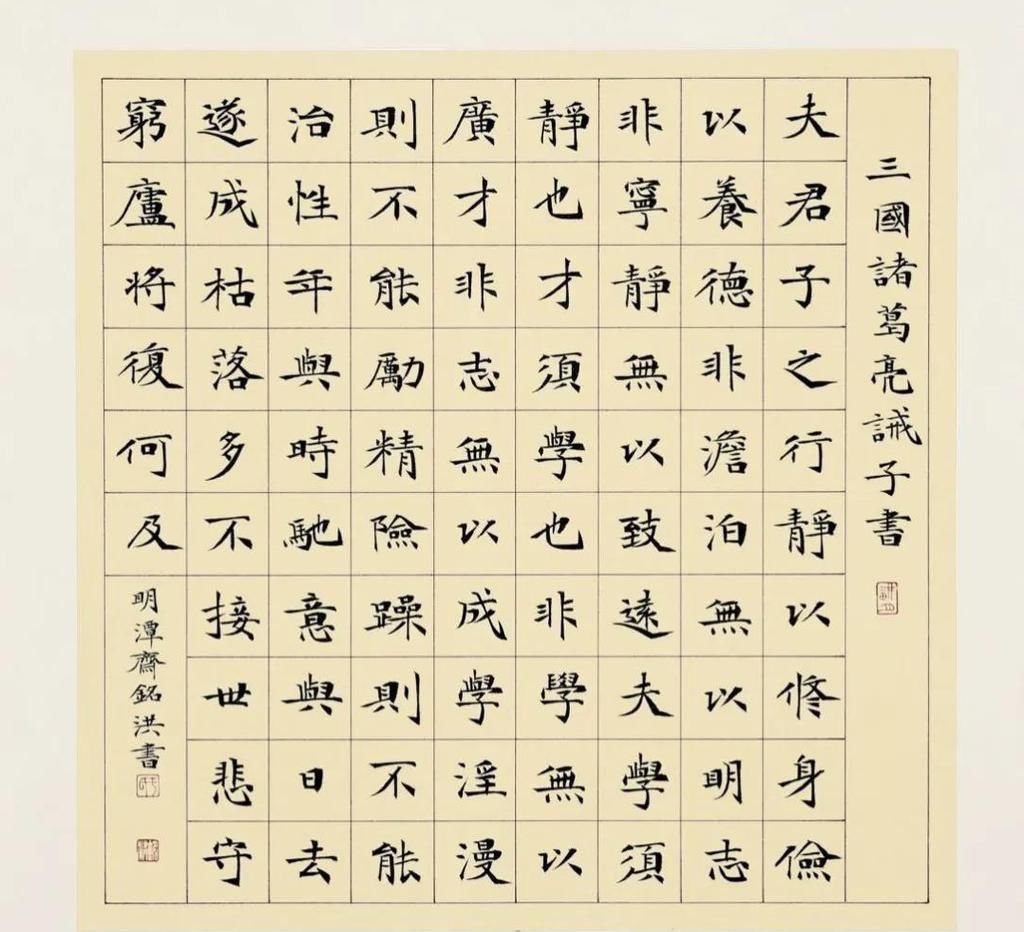 三國諸葛亮誡子書
夫君子之行靜以修身儉
以養德非澹泊無以明志
非寧靜無以致遠夫學須
靜也才須學也非學無以
廣才非志無以成學淫漫
則不能勵精險躁則不能
治性年與時馳意與日去
遂成枯落多不接世悲守
窮廬將復何及
明潭齋銘洪書